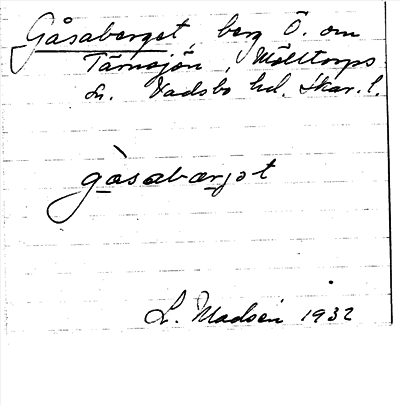 Gåsaberget berg Ö. om
Tärnsjön, Mölltorps
sn. Vadsbo hd. Skar. l.
gåsabærjət
L. Madsén 1932